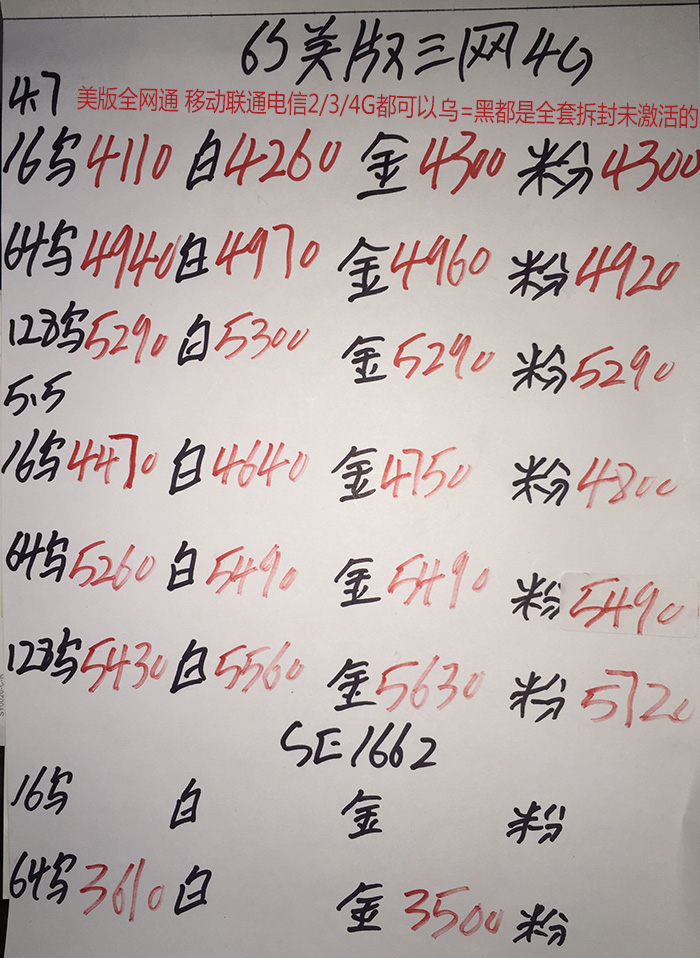 6S美版三网4G
4.7
美版全网通 移动联通电信2/3/4G都可以乌=黑都是全套拆封未激活的
16乌4110 白4260 金4300 粉4300
64乌4940白4970 金4960 粉4920
128乌5290 白5300 金5290 粉5290
5.5
16乌4470 白4640 金4750 粉4800
64乌5260 白5490 金5490 粉5490
128乌5430白5560 金5630 粉5720
SE1662
16乌 白 金 粉
64乌3610白 金3500粉